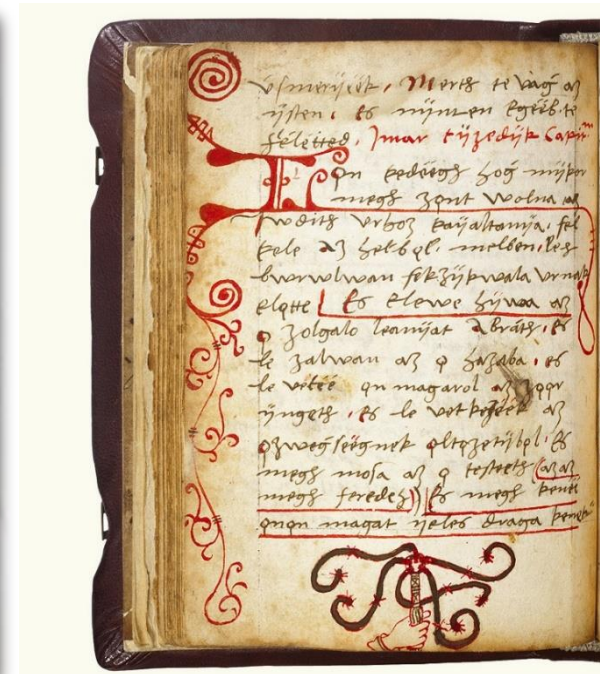 v̈ſmerÿeek. Merth te vag az
ÿſten. es nÿnčen egeeb te
feletted. Imar tÿzedÿk Capitm
Lon kedeegh hog mÿkor
megh zont wolna az
Iwdith vrhoz kaÿaltanÿa. fel
kele az helbol. melben. leh
bwrwlwan fekzÿkwala vrnak
elotte Es elewe hÿwaa az
o zolgalo leanÿat Abrath. es
le zalwan az o hazaba. es
le vetee on magarol az zoor
ÿngeth. es le vetkezeek az
ozwegseegnek oltozetÿbol. Es
megh mosa az o testeeth (azaz
megh feredez)) Es megh kenee
onon magat ÿeles draga